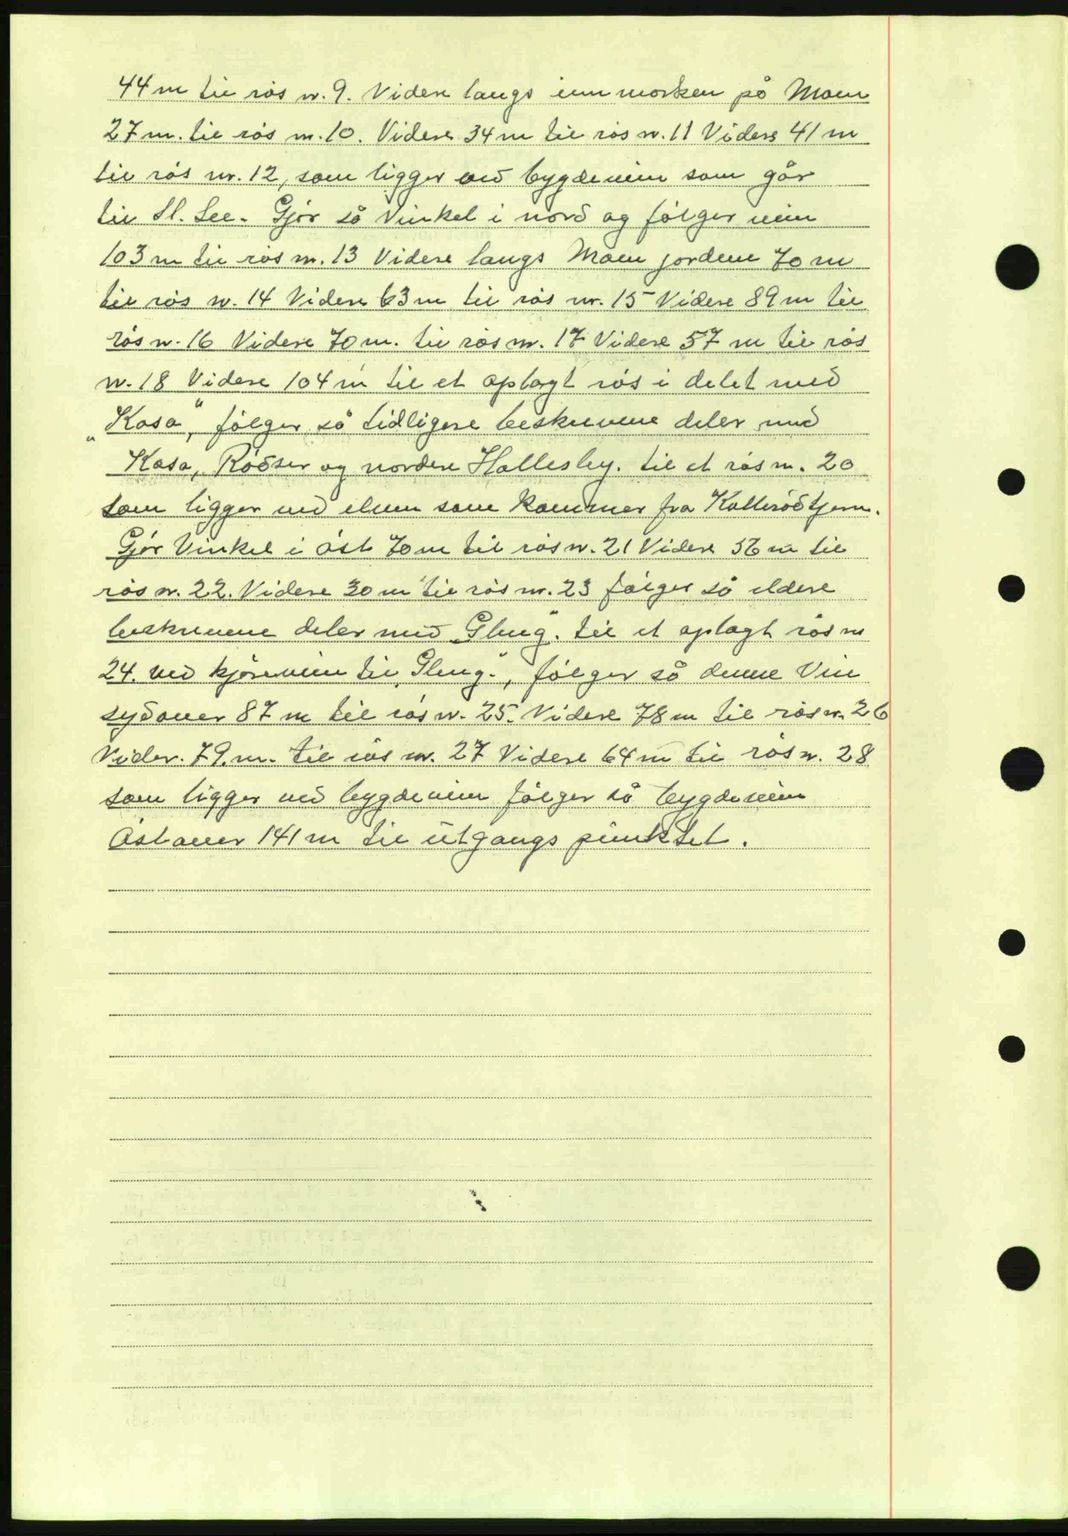 44 m til rös nr. 9. Videre langs innmorken på Moen
27 m. til rös nr. 10. Videre 34 m til rös nr. 11 Videre 41 m
til rös nr. 12, som ligger ved bygdeveien som går
til St. See. Gjør så Vinkel i nord og følger veien
103 m til rös nr. 13 Videre langs Moen jordene 70 m
til rös nr. 14 Videre 63 m til rös nr. 15 Videre 89 m til
rös nr. 16 Videre 70 m. til rös nr. 17 Videre 57 m til rös
nr. 18 Videre 104 m til et oplagt rös i delet med
"Kosa", følger så tidligere beskrevene deler med
Kosa, Rödser og nordere Hallesby. til et rös nr. 20
som ligger ved elven som kommer fra Kallerödtjern.
Gjør Vinkel i öst 70 m til rös nr. 21 Videre 56 m til
rös nr. 22. Videre 30 m til rös nr. 23 følger så eldere
beskrevene deler med "Gleng". til et oplagt rös nr
24. ved kjøreveien til "Gleng", følger så denne Vei
sydover 87 m til rös nr. 25. Videre 78 m til rös nr. 26
Vider. 79. m. til rös nr. 27 Videre 64 m til rös nr. 28
som ligger ved bygdeveien følger så bygdeveien
Östover 141 m til utgangs punktet.